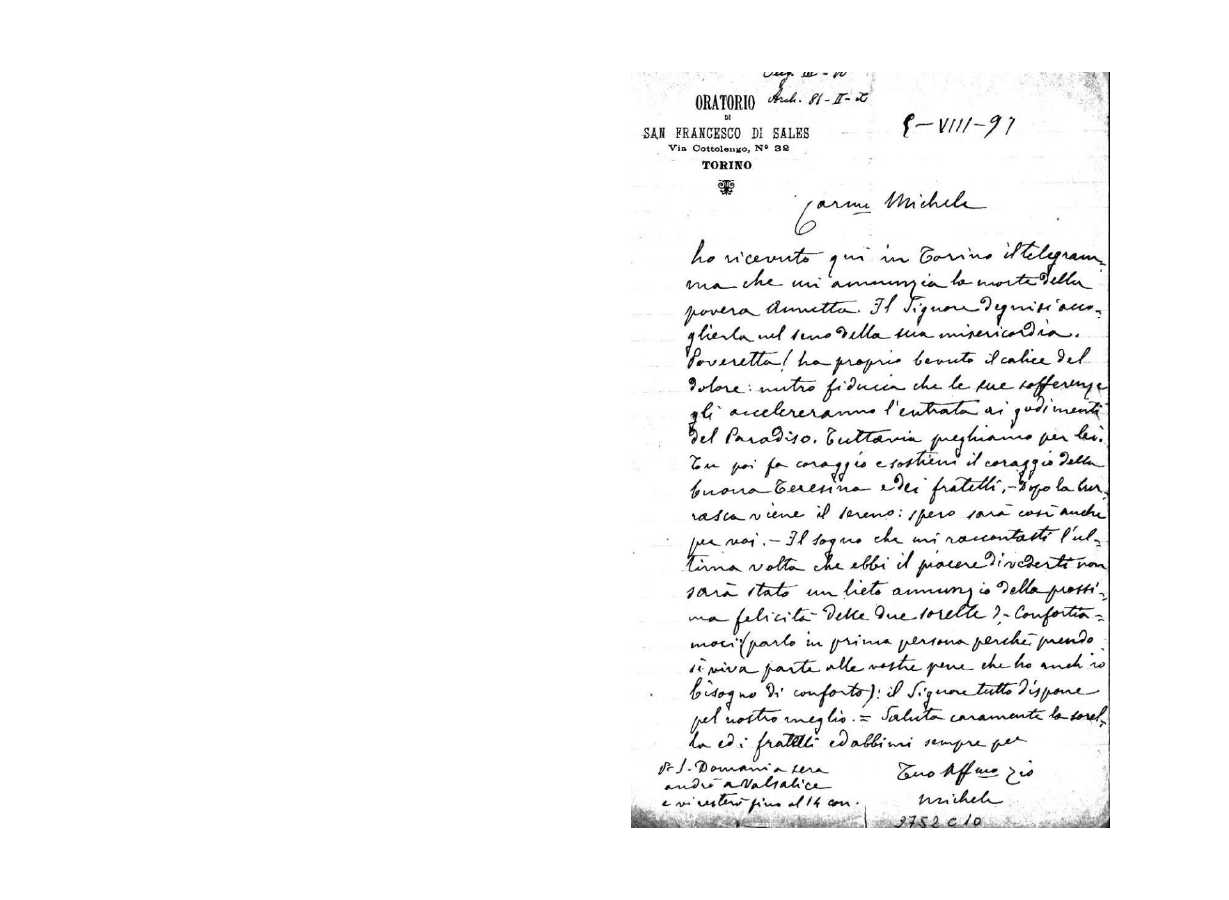 Arch. 81-II-2
ORATORIO
DI
SAN FRANCESCO DI SALES
Via Cottolengo, Nº 32
TORINO
VIII-97
Carmo Michele
ho ricevuto qui in Torino il telegram-
ma che mi annunzia la morte della
povera Annetta. Il Signore degnisi acco-
glierla nel seno della sua misericordia.
Poveretta! ha proprio bevuto il calice del
dolore: nutro fiducia che le sue sofferenze
gli accelereranno l'entrata ai godimenti
del Paradiso. Tuttavia preghiamo per lei.
Tu poi fa coraggio e sostieni il coraggio della
buona Teresina e dei fratelli. - Dopo la bur-
rasca viene il sereno: spero sarà così anche
per voi. - Il sogno che mi raccontasti l'ul-
tima volta che ebbi il piacere di vederti non
sarà stato un lieto annunzio della prossi-
ma felicità delle due sorelle? - Conforta-
moci (parlo in prima persona perché prendo
sì viva parte alle vostre pene che ho anch'io
bisogno di conforto): il Signore tutto dispone
pel nostro meglio. = Saluta caramente la sorel-
la ed i fratelli ed abbimi sempre per
Tuo Affmo Zio
Michele
P.S. Domani a sera
andrò a Valsalice
e vi resterò fino al 14 corr.
2752 C 10